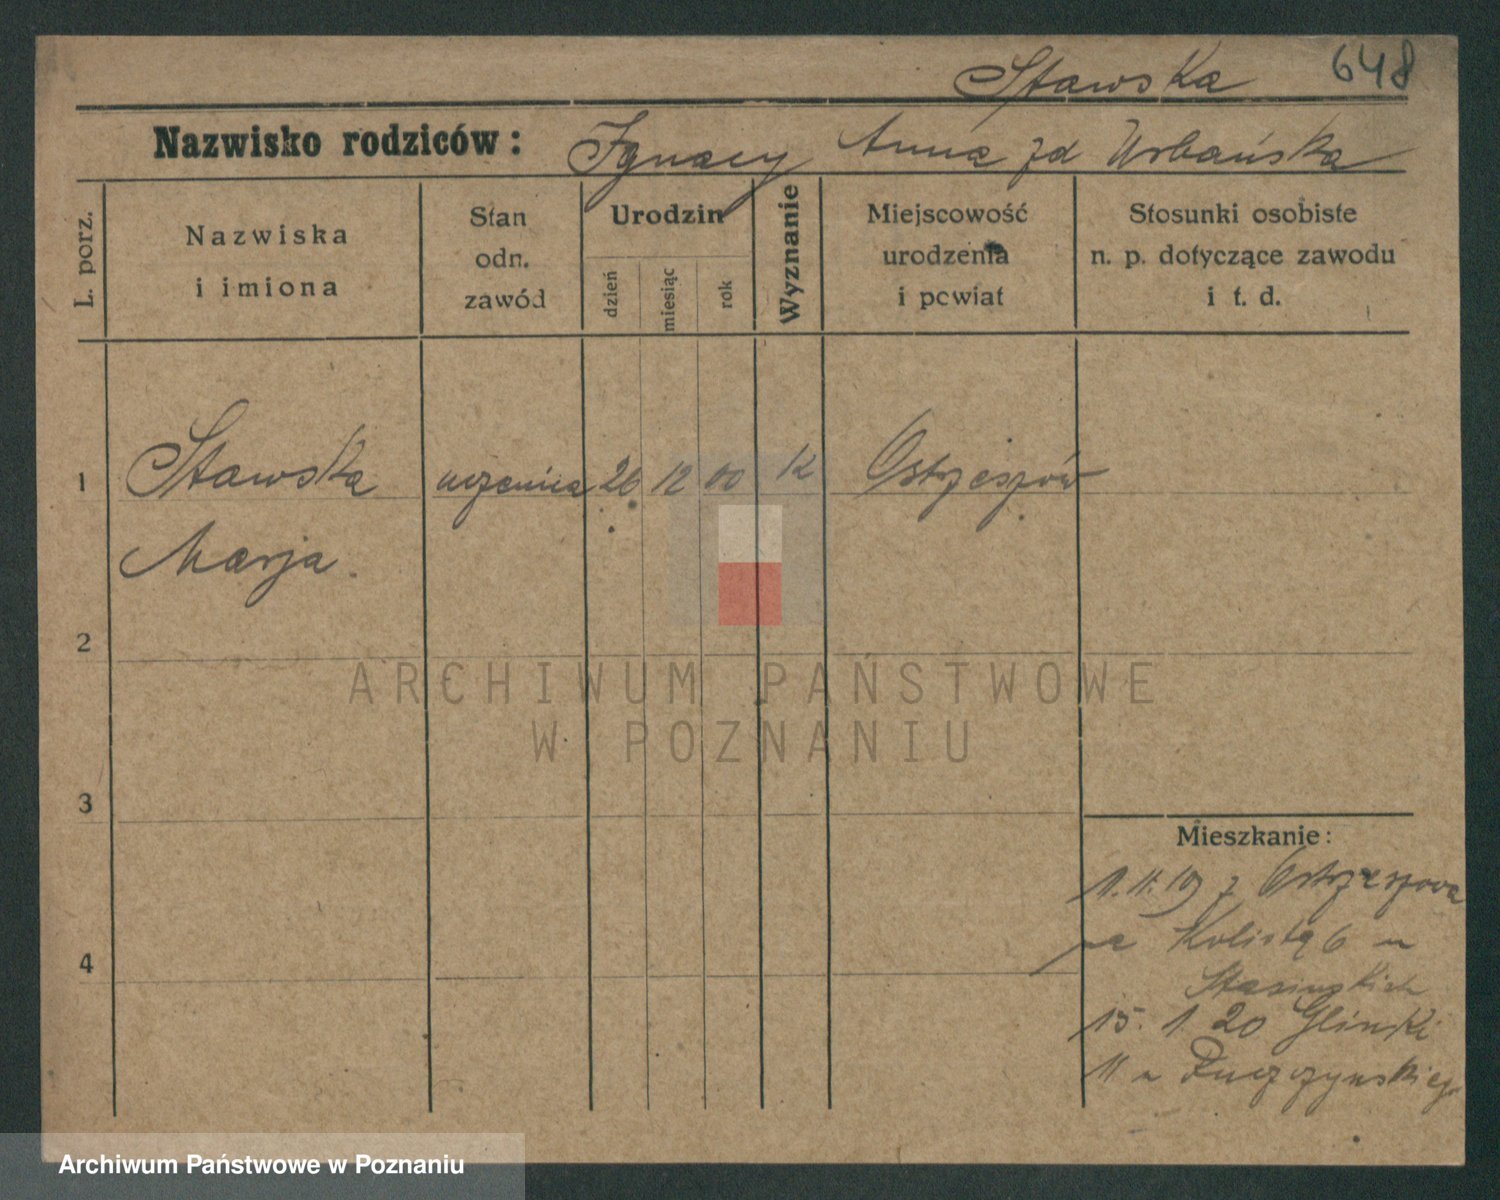 Stawska 648
Nazwisko rodziców: Ignacy Anna zd Urbańska
L. porz.
Nazwiska
i imiona
Stan
odn.
zawód
Urodzin
dzień
miesiąc
rok
Wyznanie
Miejscowość
urodzenia
i powiat
Stosunki osobiste
n. p. dotyczące zawodu
i t. d.
1 Stawska uczenica 26 12 00 K Ostrzeszów
Marja.
2
3
4
Mieszkanie:
1. 11. 19 z Ostrzeszowa
na Kolistą 6 u
Stasińskich
15. 1. 20 Glinki
11 u
ARCHIWUM PAŃSTWOWE
W POZNANIU
Archiwum Państwowe w Poznaniu